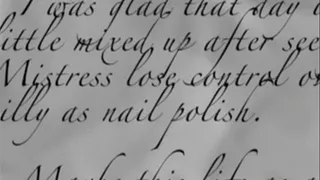 I was glad that day
ittle mixed up after see
Mistress lose control o
illy as nail polish.
Maybe this life